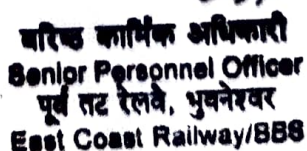 वरिष्ठ कार्मिक अधिकारी
Senior Personnel Officer
पूर्व तट रेलवे, भुवनेश्वर
East Coast Railway/BBS